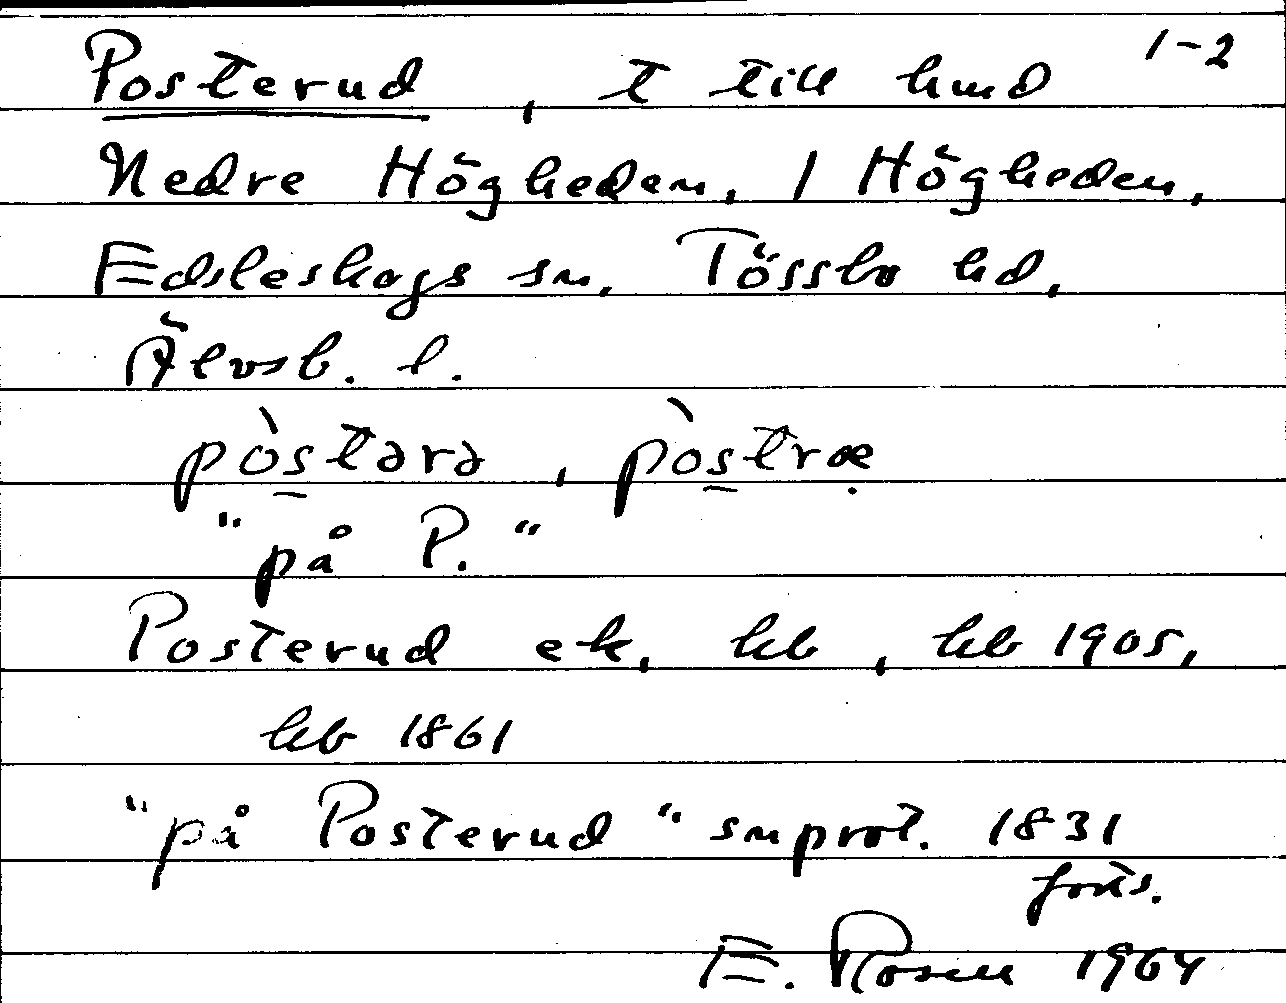 Posterud, t till hmd 1-2
Nedre Högheden, 1 Högheden,
Edsleskogs sn. Tössbo hd,
Älvsb. l.
pòstərə, pòstræ
"på P."
Posterud ek, kb, hb 1905,
kb 1861
"på Posterud" snprot. 1831
forts.
E. Rosen 1964